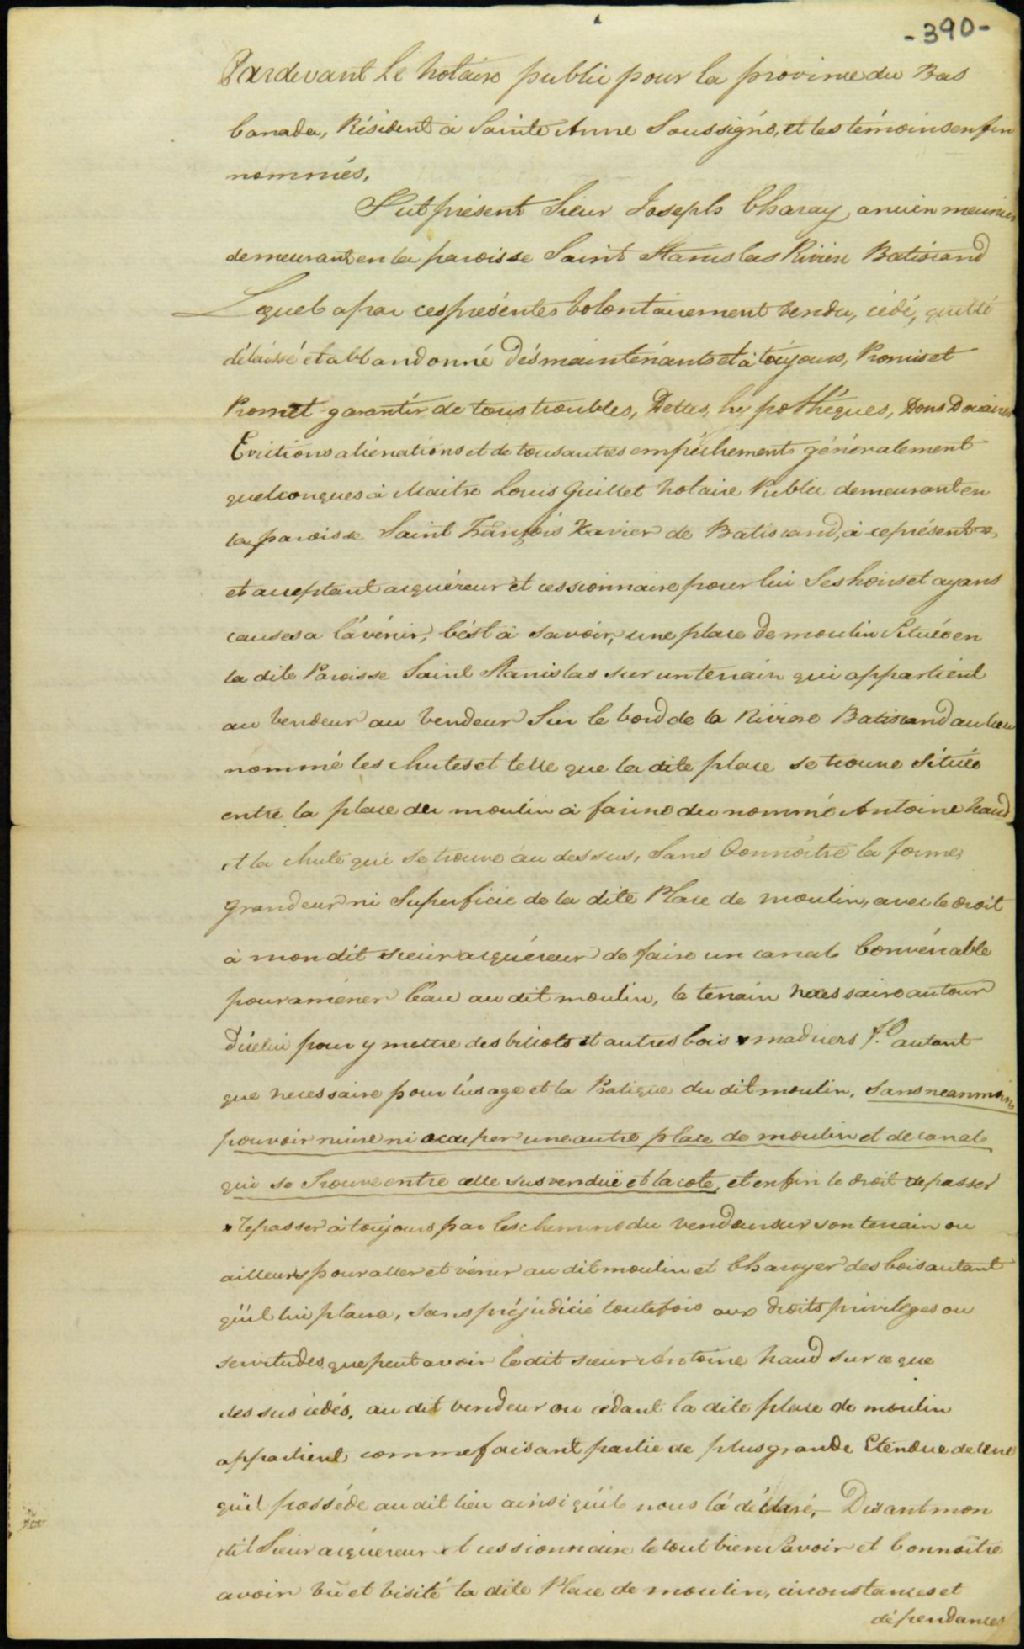 -390-
Pardevant le Notaire public pour la province du Bas
Canada, Résident à Sainte Anne Soussigné, et les témoins enfin
nommés.
Fut présent Sieur Joseph Charay ancien meunier
demeurant en la paroisse Saint Stanislas Rivière Batiscand
Lequel a par ces présentes volontairement vendu, cédé, quitté
délaissé et abbandonné dès maintenant et à toujours, Promis et
Promet garantir de tous troubles, Dettes, hypothèques, Dons Douaires
Evictions aliénations et de tous autres empêchements généralement
quelconques à Maitre Louis Guillet Notaire Public demeurant en
la paroisse Saint François Xavier de Batiscand, à ce présent
et acceptant acquéreur et cessionnaire pour lui Ses hoirs et ayans
causes a l'avenir, C'est à savoir, une place de moulin Située en
la dite Paroisse Saint Stanislas sur un terrain qui appartient
au vendeur au vendeur Sur le bord de la Rivière Batiscand au lieu
nommé les chutes et telle que la dite place se trouve Située
entre la place du moulin à farine du nommé Antoine Naud
et la chute qui se trouve au dessus, Sans Connoître la forme,
grandeur ni Superficie de la dite Place de moulin, avec le droit
à mon dit sieur acquéreur de faire un canal Convenable
pour amener l'eau au dit moulin, le terrain necessaire autour
d'icelui pour y mettre des billots et autres bois & madriers &c autant
que necessaire pour l'usage et la Pratique du dit moulin, Sans neanmoins
pouvoir nuire ni occuper une autre place de moulin et de canal
qui se Trouve entre celle sus vendue et la cote, et enfin le droit de passer
& repasser à toujours par les chemins du vendeur sur son terrain ou
ailleurs pour aller et venir au dit moulin et Charoyer des bois autant
qu'il lui plaira, sans préjudicié toutefois aux droits privileges ou
servitudes que peut avoir le dit sieur Antoine Naud sur ce que
dessus cédés, au dit vendeur ou cédant la dite place de moulin
appartient comme faisant partie de plus grande Etendue de terre
qu'il possède au dit lieu ainsi qu'il nous l'a déclaré, — Disant mon
dit Sieur acquéreur et cessionnaire le tout bien Savoir et Connoître
avoir vu et visité la dite Place de moulin, circonstances et
dépendances